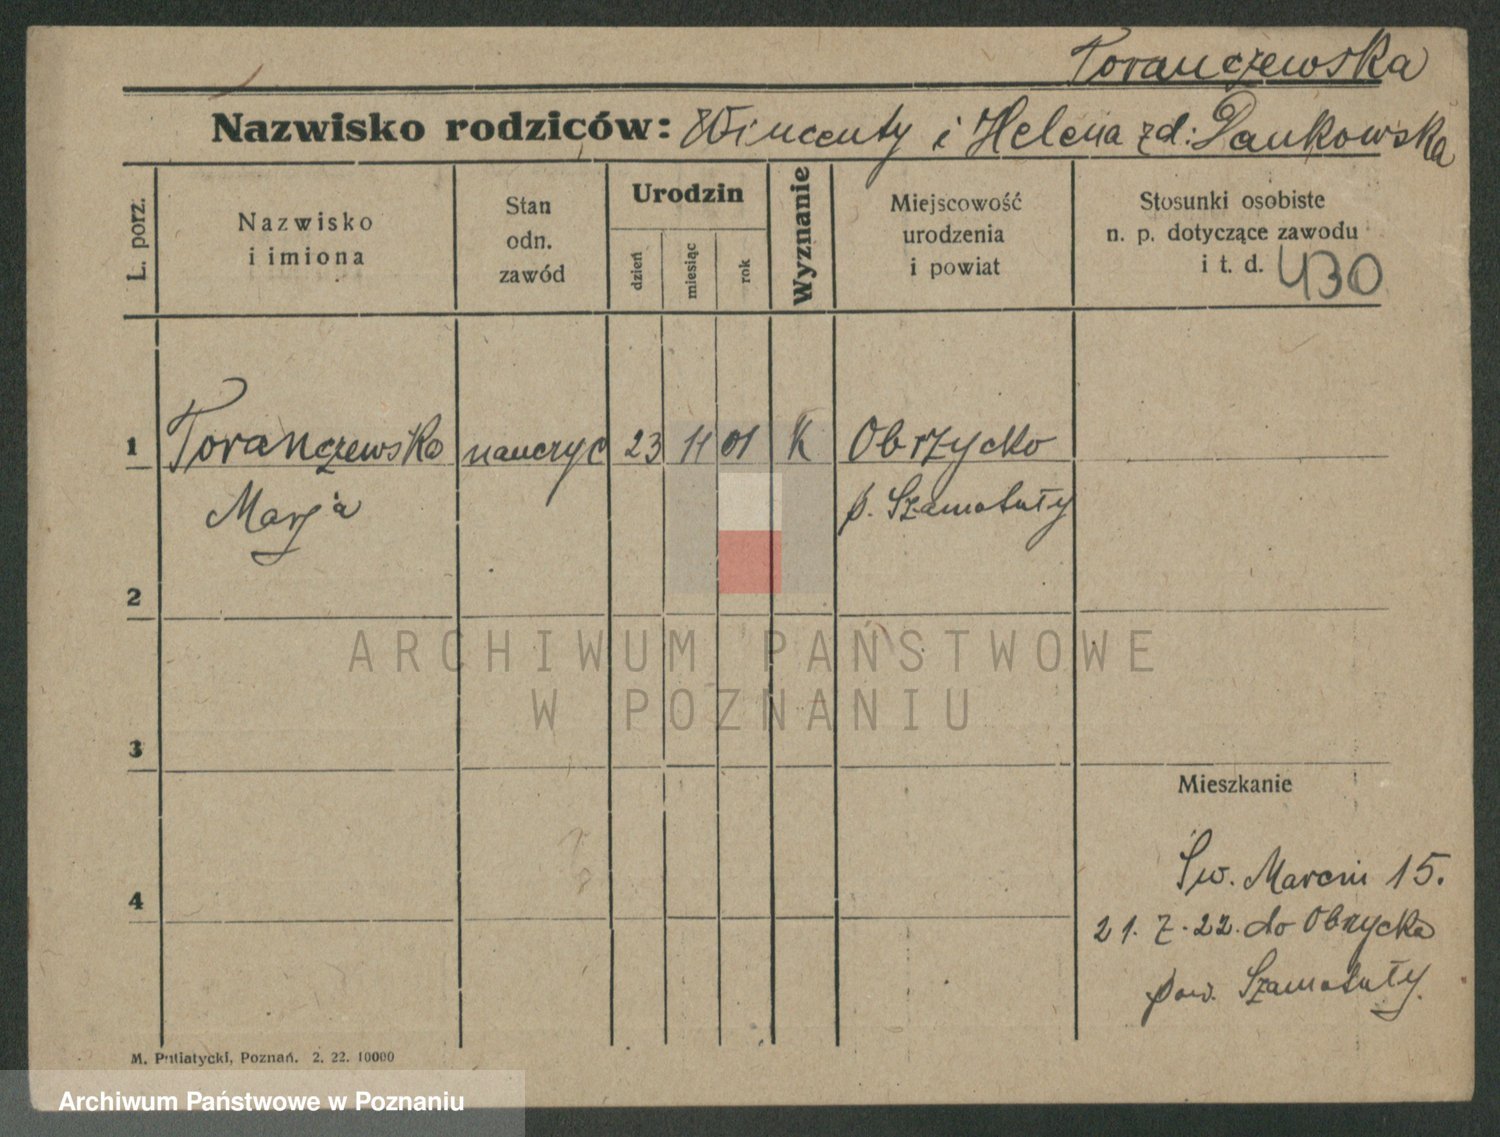 Toranczewska
Nazwisko rodziców: Wincenty i Helena zd: Dankowska
L. porz.
Nazwisko
i imiona
Stan
odn.
zawód
Urodzin
dzień
miesiąc
rok
Wyznanie
Miejscowość
urodzenia
i powiat
Stosunki osobiste
n. p. dotyczące zawodu
i t. d. 430
1 Toranczewska nauczyc 23 11 01 K Obrzycko
Marja p. Szamotuły
2
ARCHIWUM PAŃSTWOWE
W POZNANIU
3
Mieszkanie
Św. Marcin 15.
4
21. 7. 22. do Obrzycka
pow. Szamotuły.
M. Putiatycki, Poznań. 2. 22. 10000
Archiwum Państwowe w Poznaniu